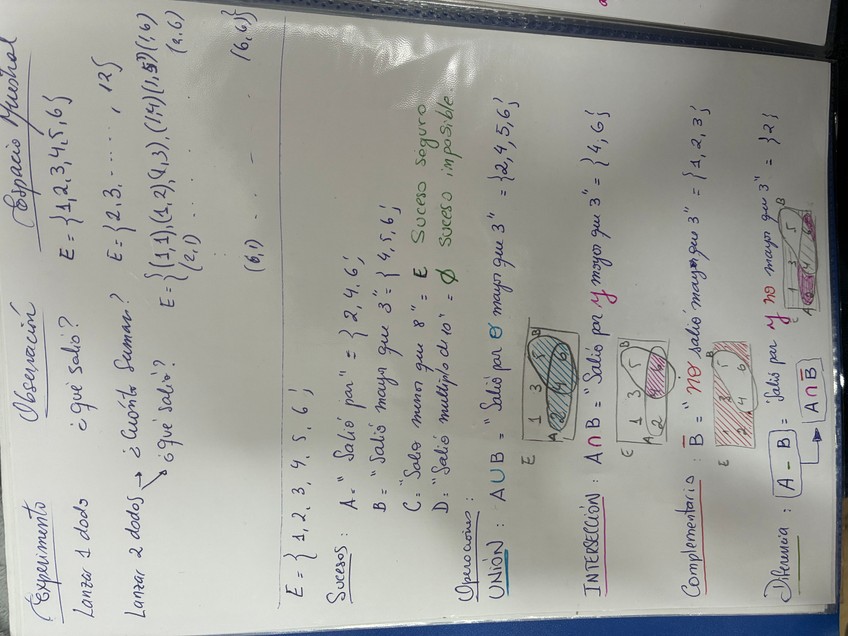 Experimento Observación Espacio Muestral
Lanzar 1 dado ¿qué salió? E = {1,2,3,4,5,6}
Lanzar 2 dados → ¿Cuánto suman? E = {2,3,......, 12}
¿qué salió? E = {(1,1),(1,2),(1,3),(1,4)(1,5)(1,6)
(2,1) ..... (2,6)
(6,1) ... (6,6)}
E = { 1, 2, 3, 4, 5, 6 }
Sucesos : A = "Salió par" = { 2, 4, 6 }
B = "Salió mayor que 3" = { 4, 5, 6 }
C = "Salió menor que 8" = E Suceso seguro
D = "Salió múltiplo de 10" = ∅ suceso imposible.
Operaciones :
UNIÓN : A ∪ B = "Salió par o mayor que 3" = {2,4,5,6}
E 1 3 5 B
A 2 4 6
INTERSECCIÓN : A ∩ B = "Salió par y mayor que 3" = {4,6}
E 1 3 5 B
A 2 4 6
Complementario : B̅ = "no salió mayor que 3" = {1,2,3}
E 1 3 5 B
2 4 6
Diferencia : A - B = Salió par y no mayor que 3" = {2}
A ∩ B̅
E 1 3 5 B
A 2 4 6